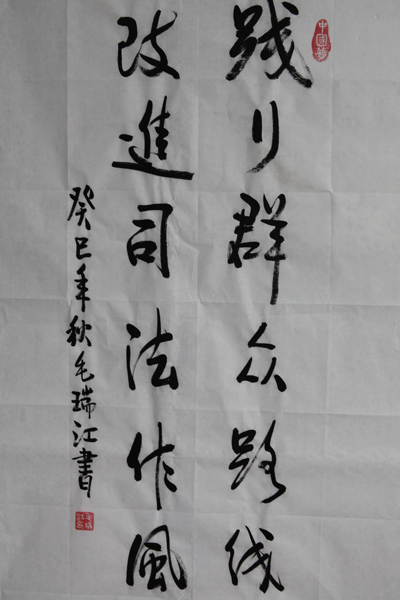 践行群众路线
改進司法作風
癸巳年秋毛瑞江書
中國夢